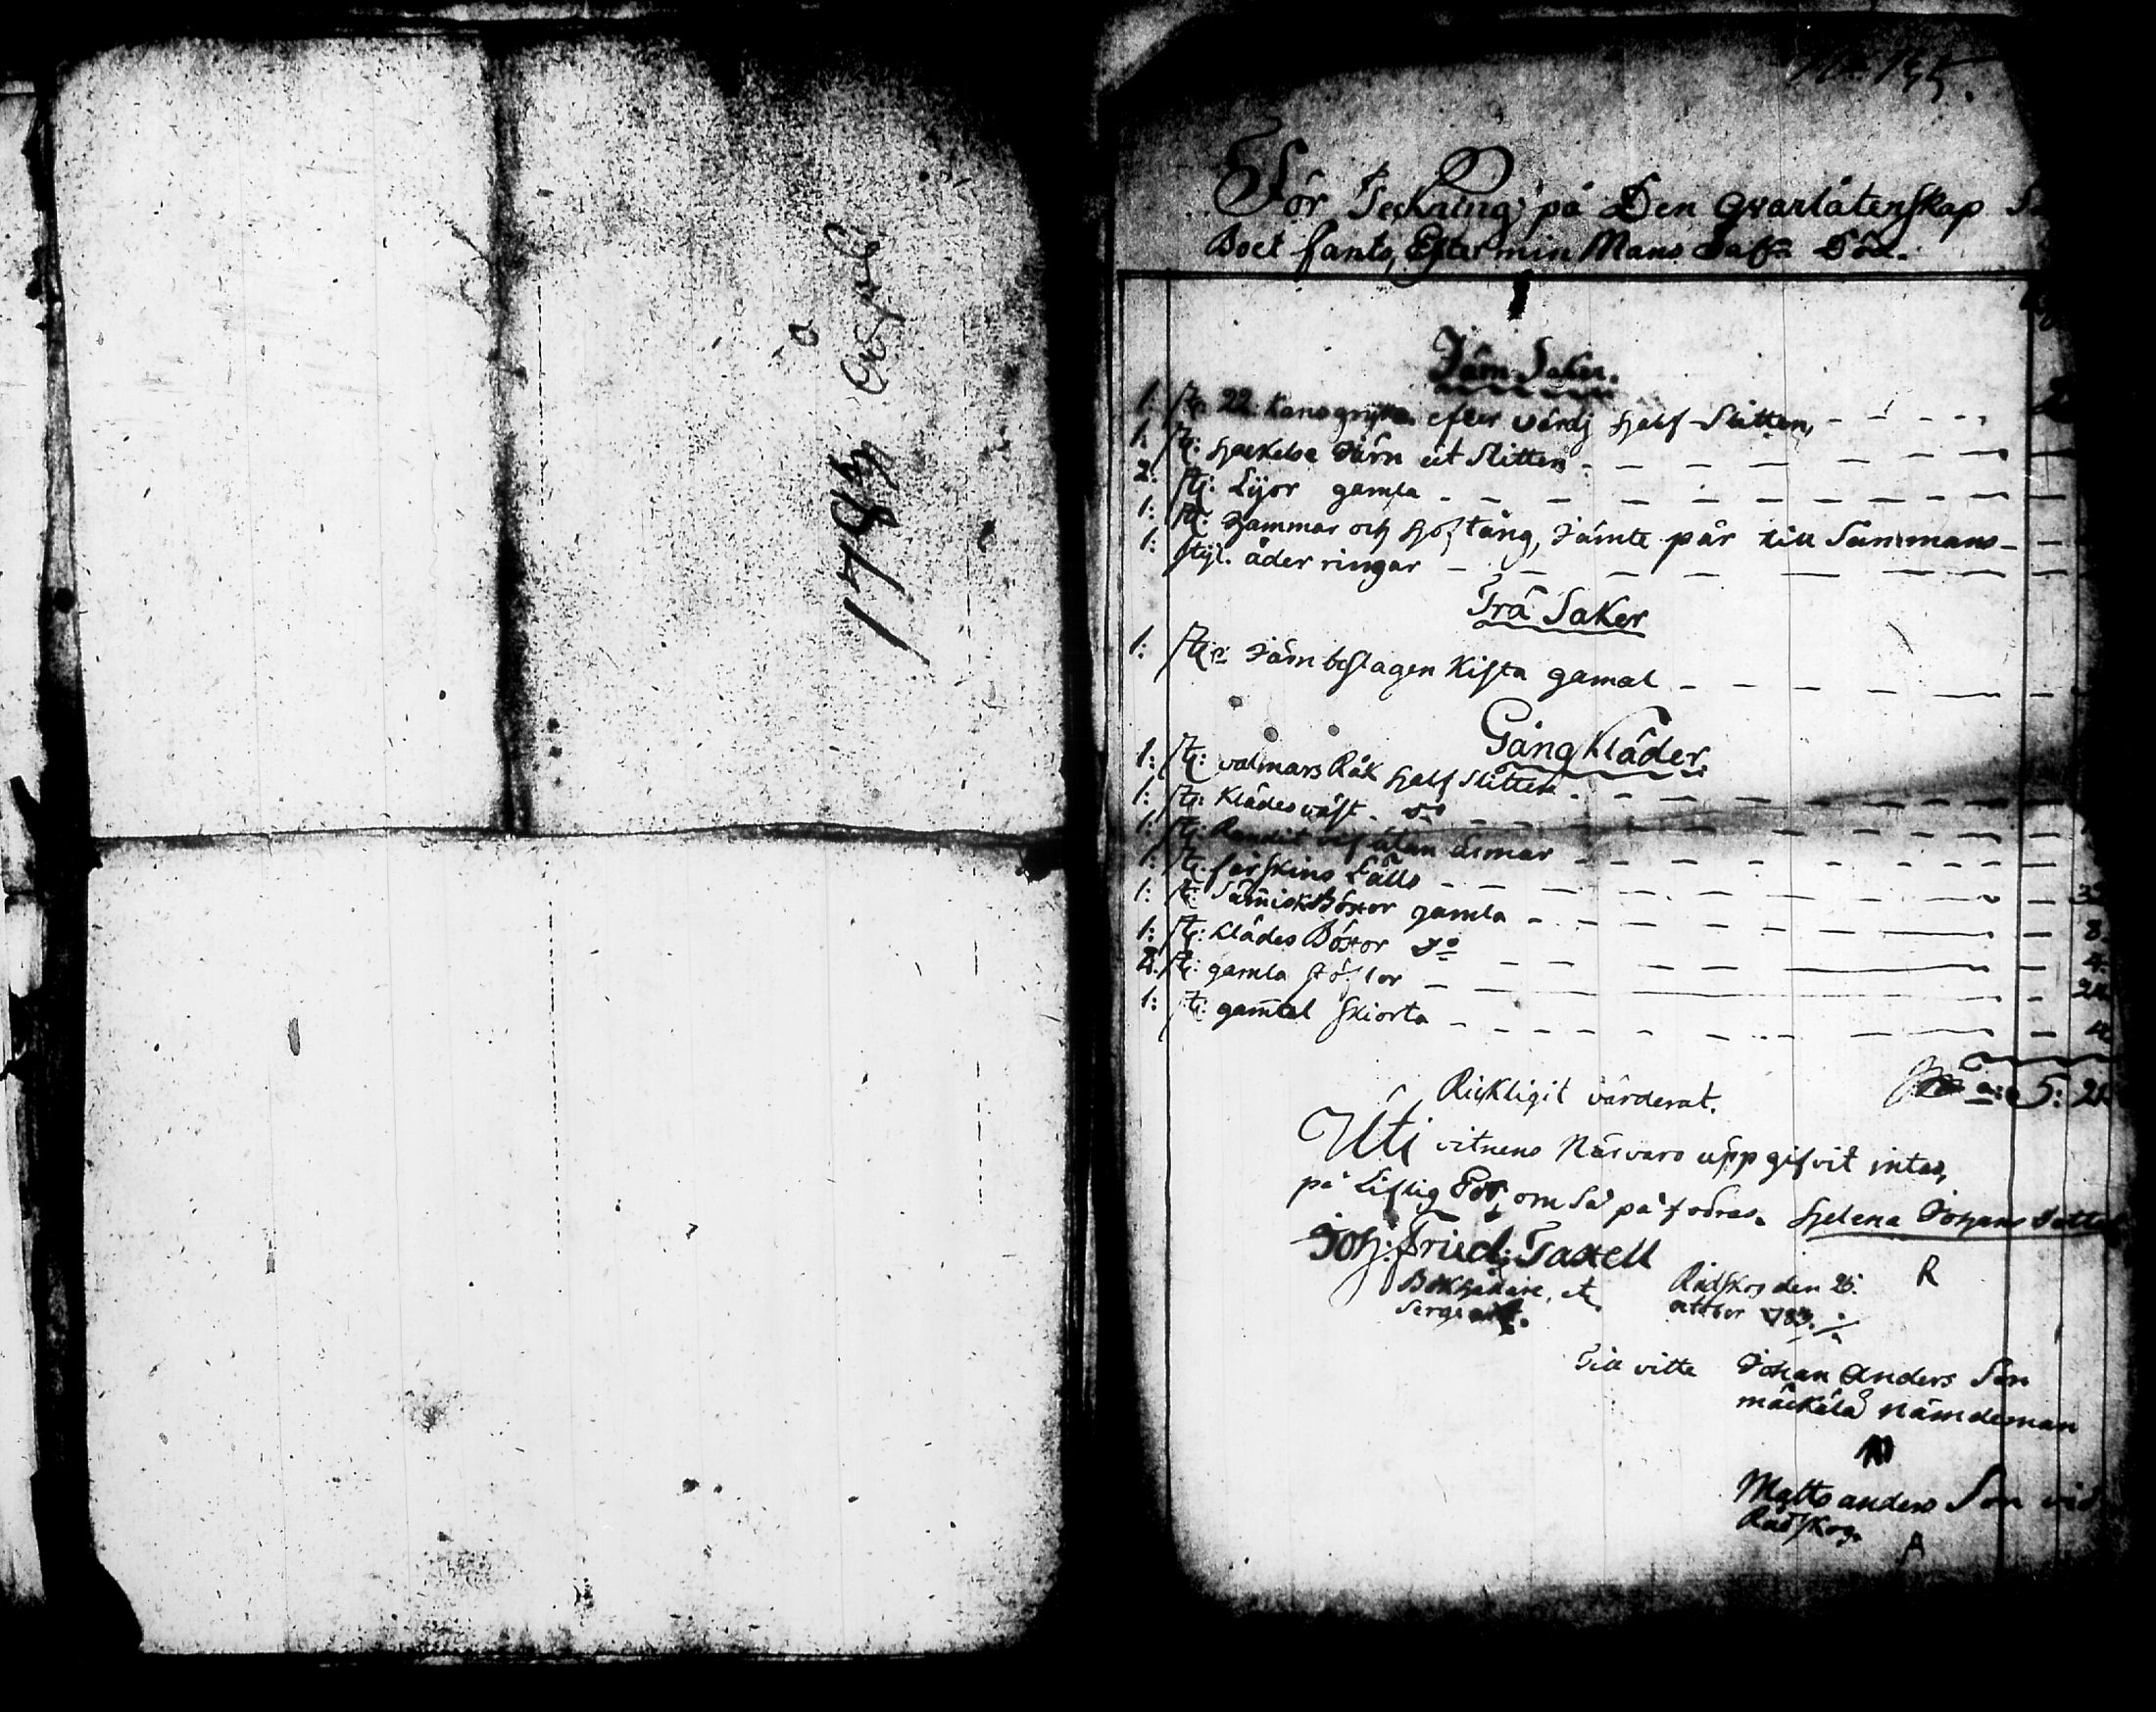 1783
För Teckning på Den qvarlåtenskap
Boet fants, Efter min Mans Sal. Död.
Järn Saker.
1: st: 22 kans gryta efter värdj half Slitten,
1: st: hackelse Järn ut Slitten
2: st: Lijor gamla
1: st: hammar och hof tång, Jämte pår till Sammans
1: styl. åder ringar
Trä Saker
1: st: Järnbeslagen Kista gamal
Gång Kläder.
1: st: valmars Råk half Slitten
1: st: Klädes väst do
1: st: Randit utan armar
1: st: fårskins Fälls
1: st: Sämisk Böxor gamla
8.
1: st: Klädes Böxor do
4.
2: st: gamla stöflor
24
1: st: gammal Skiorta
4
S:a 5: 21
Ricktigit värderat.
Uti vitnens Närvaro uppgifvit intas,
på Liflig Ed, om Så påfodras. Helena Johans Dotter
Joh: Fried: Taxell
Bokhållare, etc
Sergeant.
Rådskog den 25:
october 1783.
R
Till vitte Johan Anders Son
mäckälä Nämdeman
M
Matts anders Son vid
Rådskog.
A